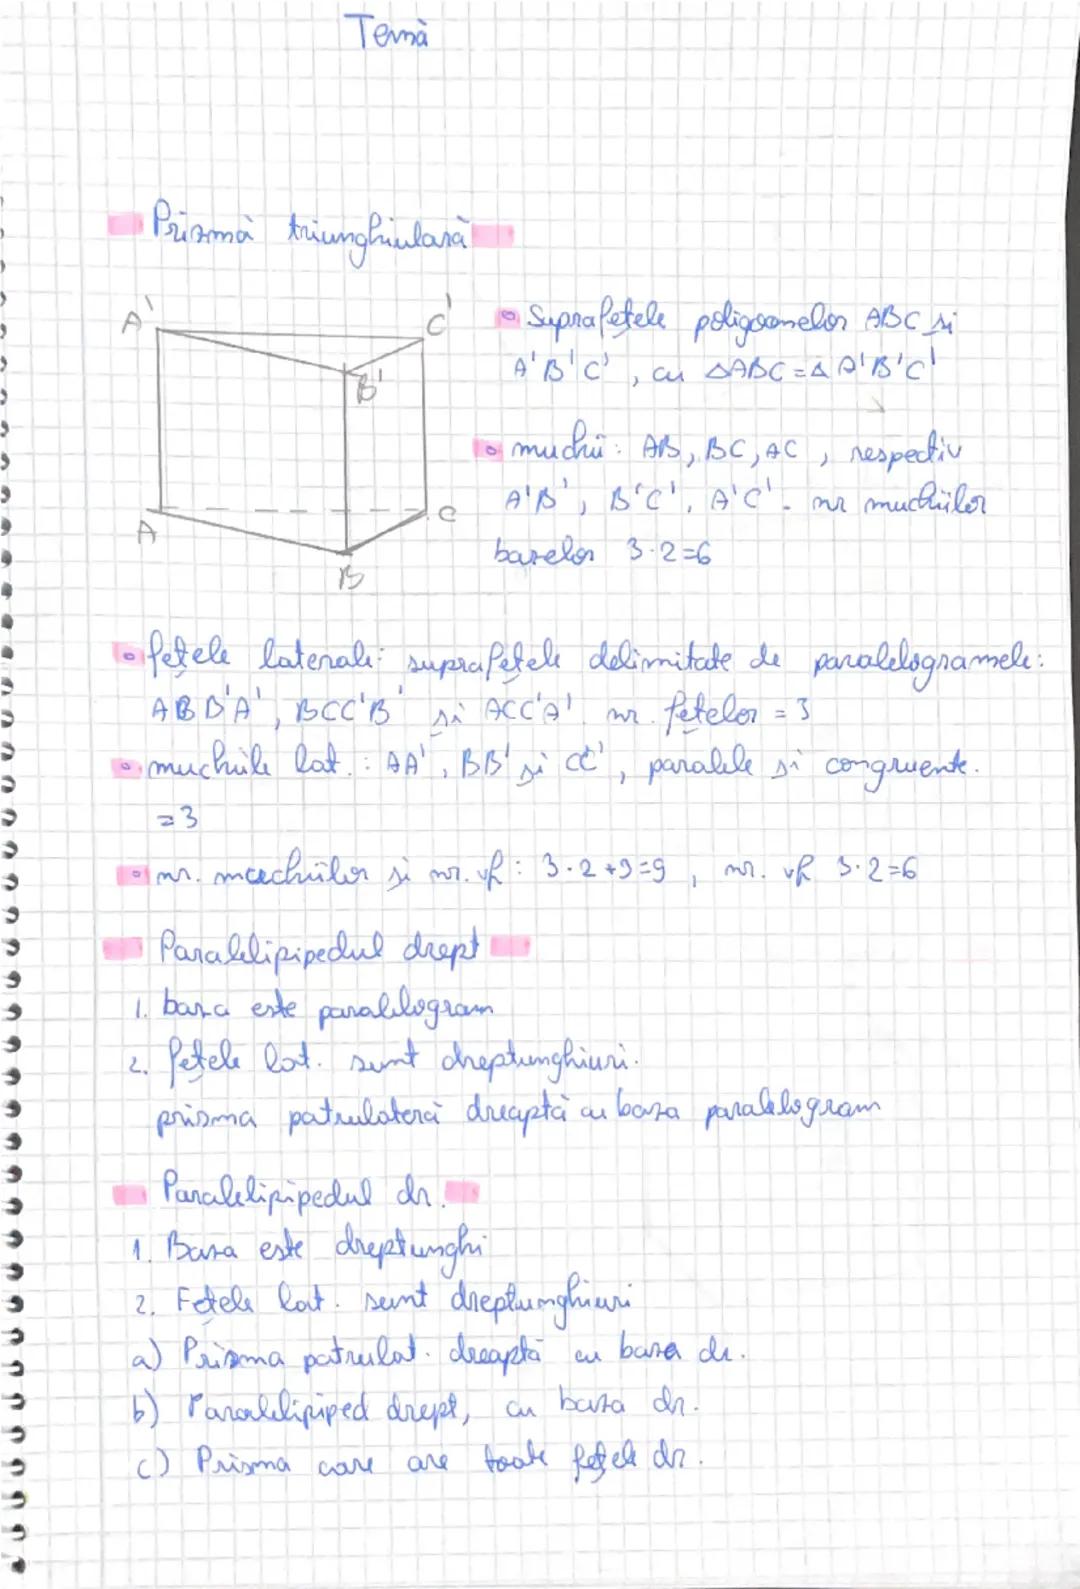 Temă
Prismă triunghiulară
A'
C'
B'
A
C
B
Suprafețele poligoanelor ABC și
A'B'C', cu △ABC=△A'B'C'
muchii: AB, BC, AC, respectiv
A'B', B'C', A'C'. nr muchiilor
bazelor 3·2=6
fețele laterale: suprafețele delimitate de paralelogramele:
ABB'A', BCC'B' și ACC'A' nr. fețelor = 3
muchiile lat.: AA', BB' și CC', paralele și congruente.
=3
nr. muchiilor și nr. vf: 3·2+3=9, nr. vf 3·2=6
Paralelipipedul drept
1. baza este paralelogram
2. fețele lat. sunt dreptunghiuri.
prisma patrulateră dreaptă cu baza paralelogram
Paralelipipedul dr.
1. Baza este dreptunghi
2. Fețele lat. sunt dreptunghiuri
a) Prisma patrulat. dreaptă cu baza dr.
b) Paralelipiped drept, cu baza dr.
c) Prisma care are toate fețele dr.